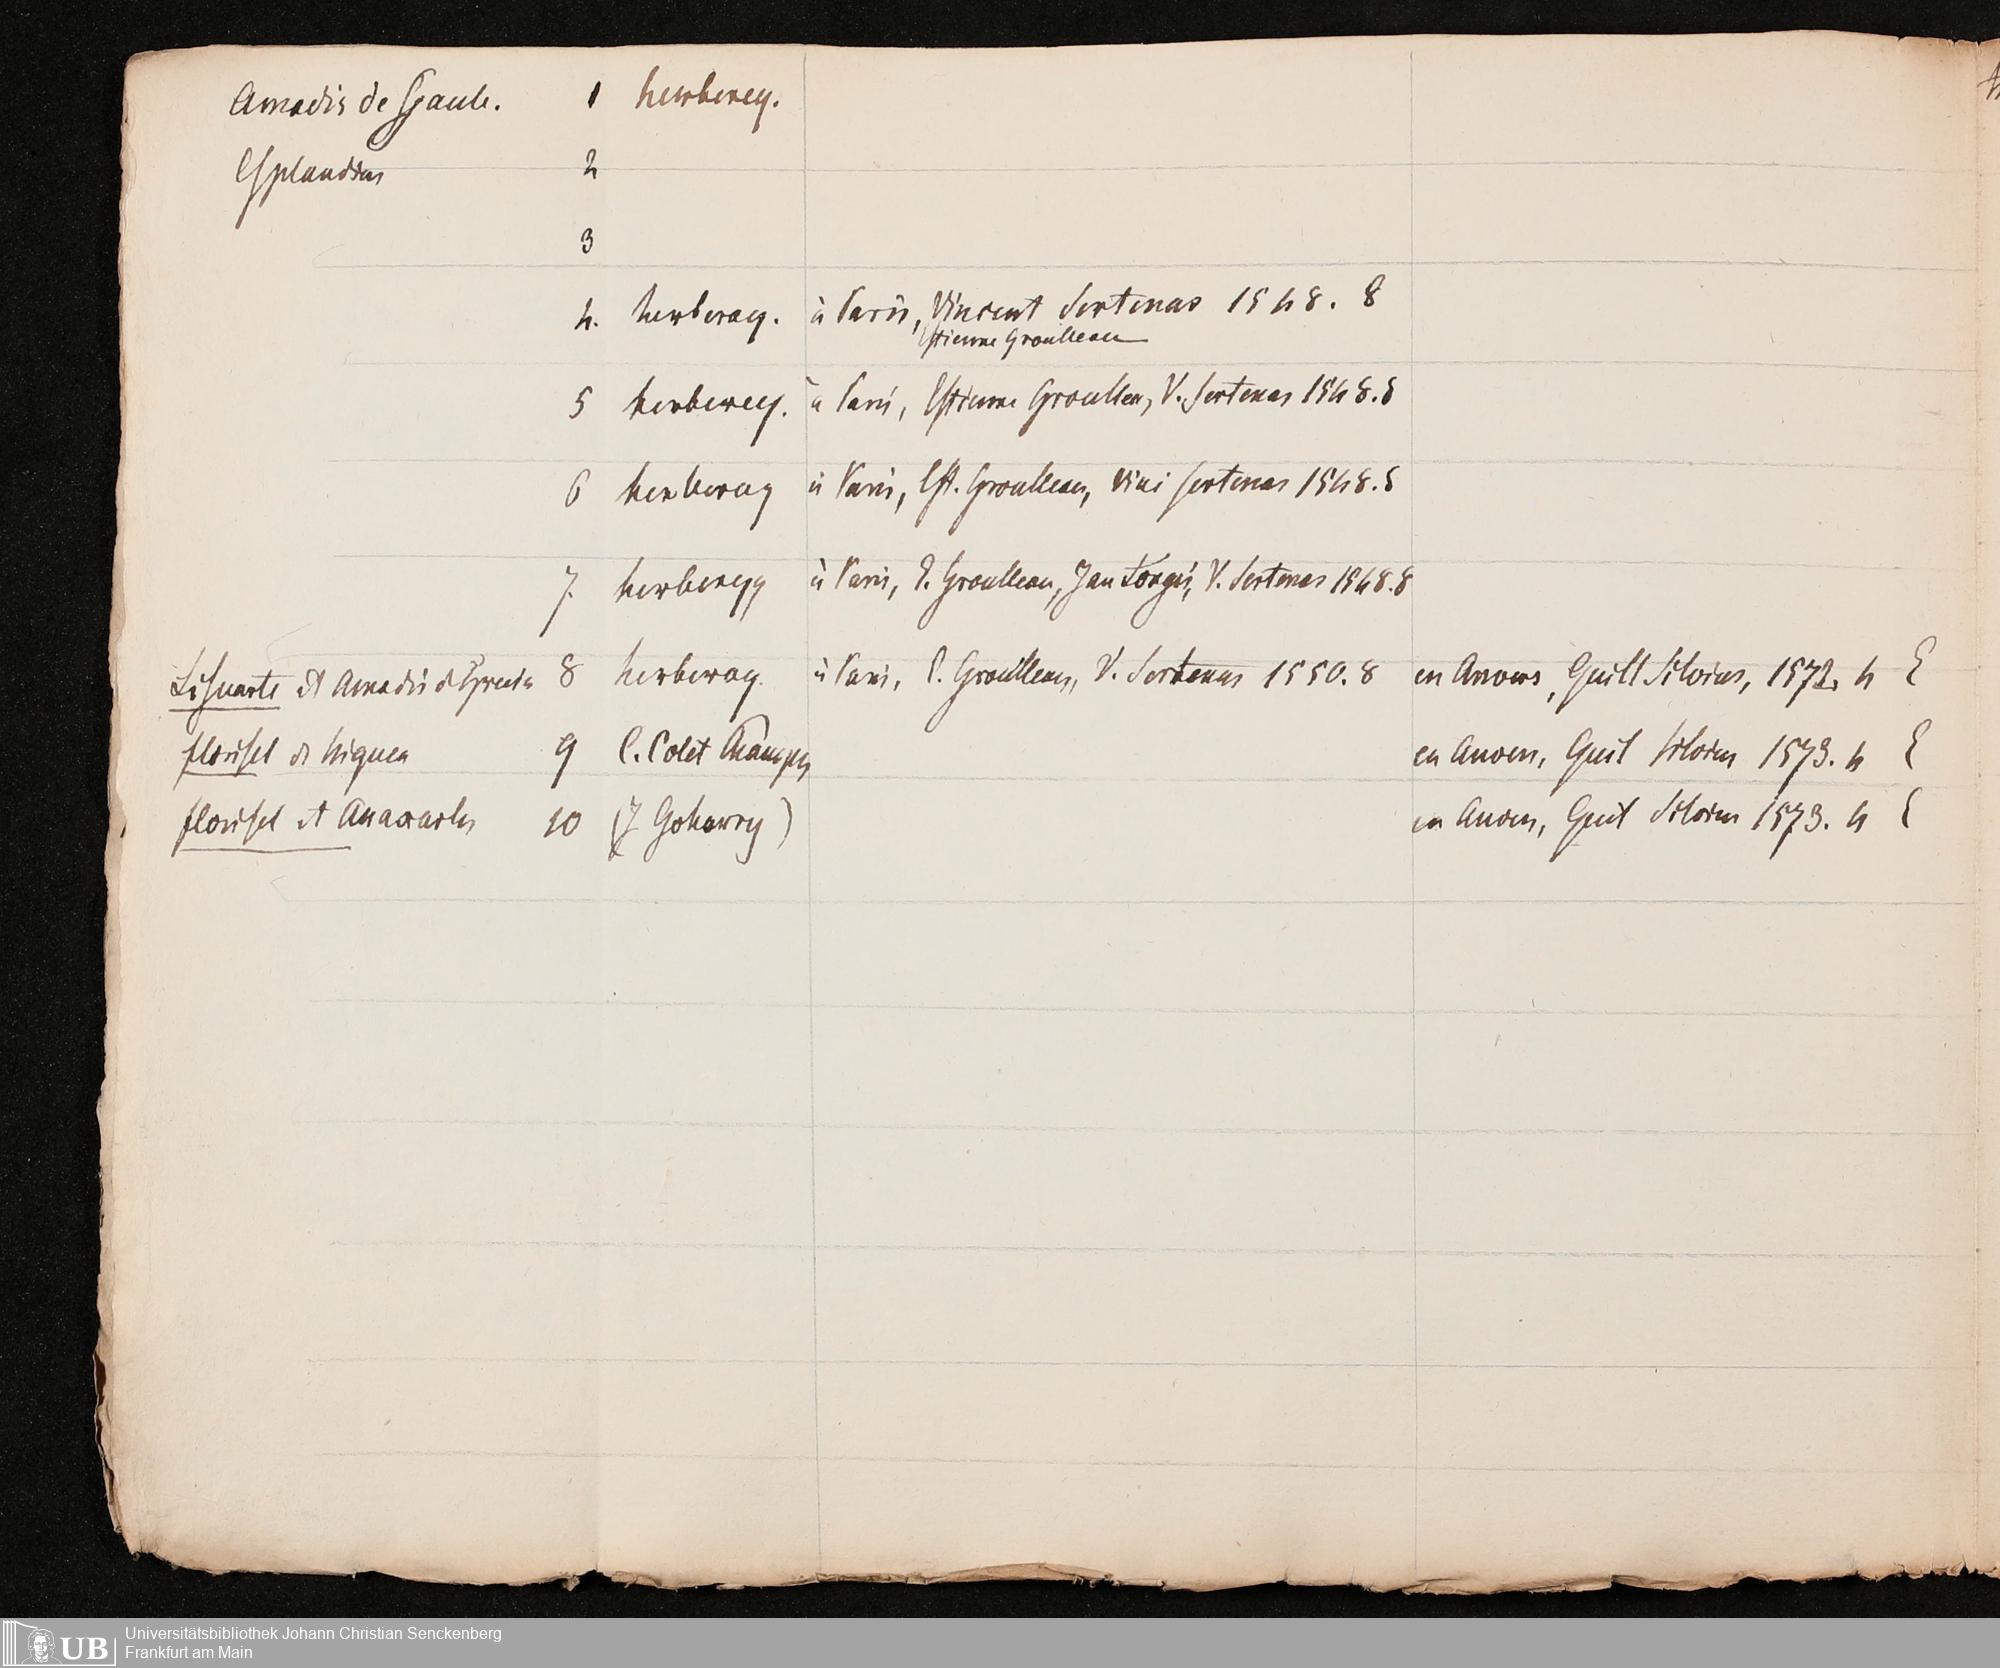 Amadis de Gaule. 1 herberay.
Esplandian 2
3
4. herberay. à Paris, Vincent Sertenas 1548. 8
Estienne Groulleau
5 herberay. à Paris, Estienne Groulleau, V. Sertenas 1548. 8
6 herberay à Paris, Est. Groulleau, Vinc Sertenas 1548. 8
7. herberay à Paris, E. Groulleau, Jan Longis, V. Sertenas 1548. 8
Lisuarte et Amadis de Grecia 8 herberay. à Paris, E. Groulleau, V. Sertenas 1550. 8 en Anvers, Guill Silvius, 1572. 4 E
florisel de Niquea 9 C. Colet Champen en Anvers, Guil Silvius 1573. 4 E
florisel et Anaxartes 10 (J Gohorry) en Anvers, Guil Silvius 1573. 4 E
UB
Universitätsbibliothek Johann Christian Senckenberg
Frankfurt am Main